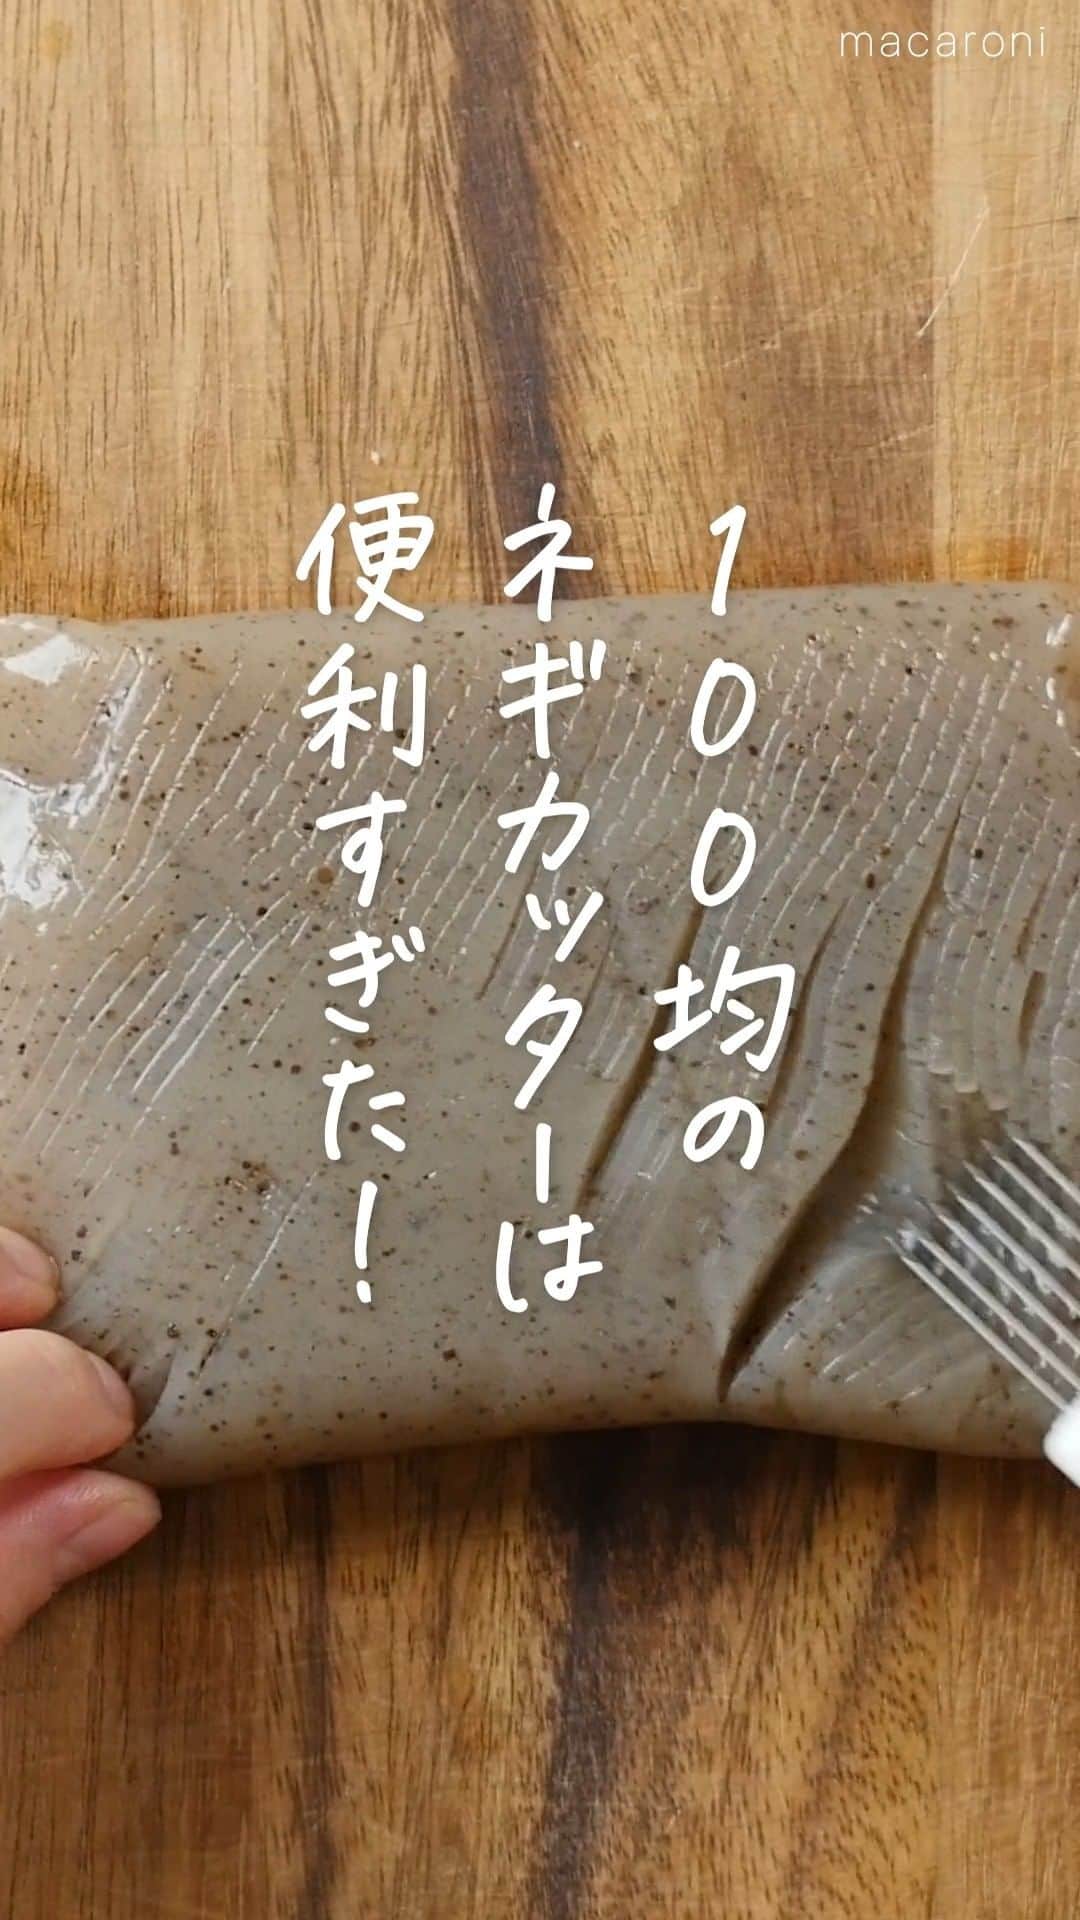 macaroni
100均の
ネギカッターは
便利すぎた!